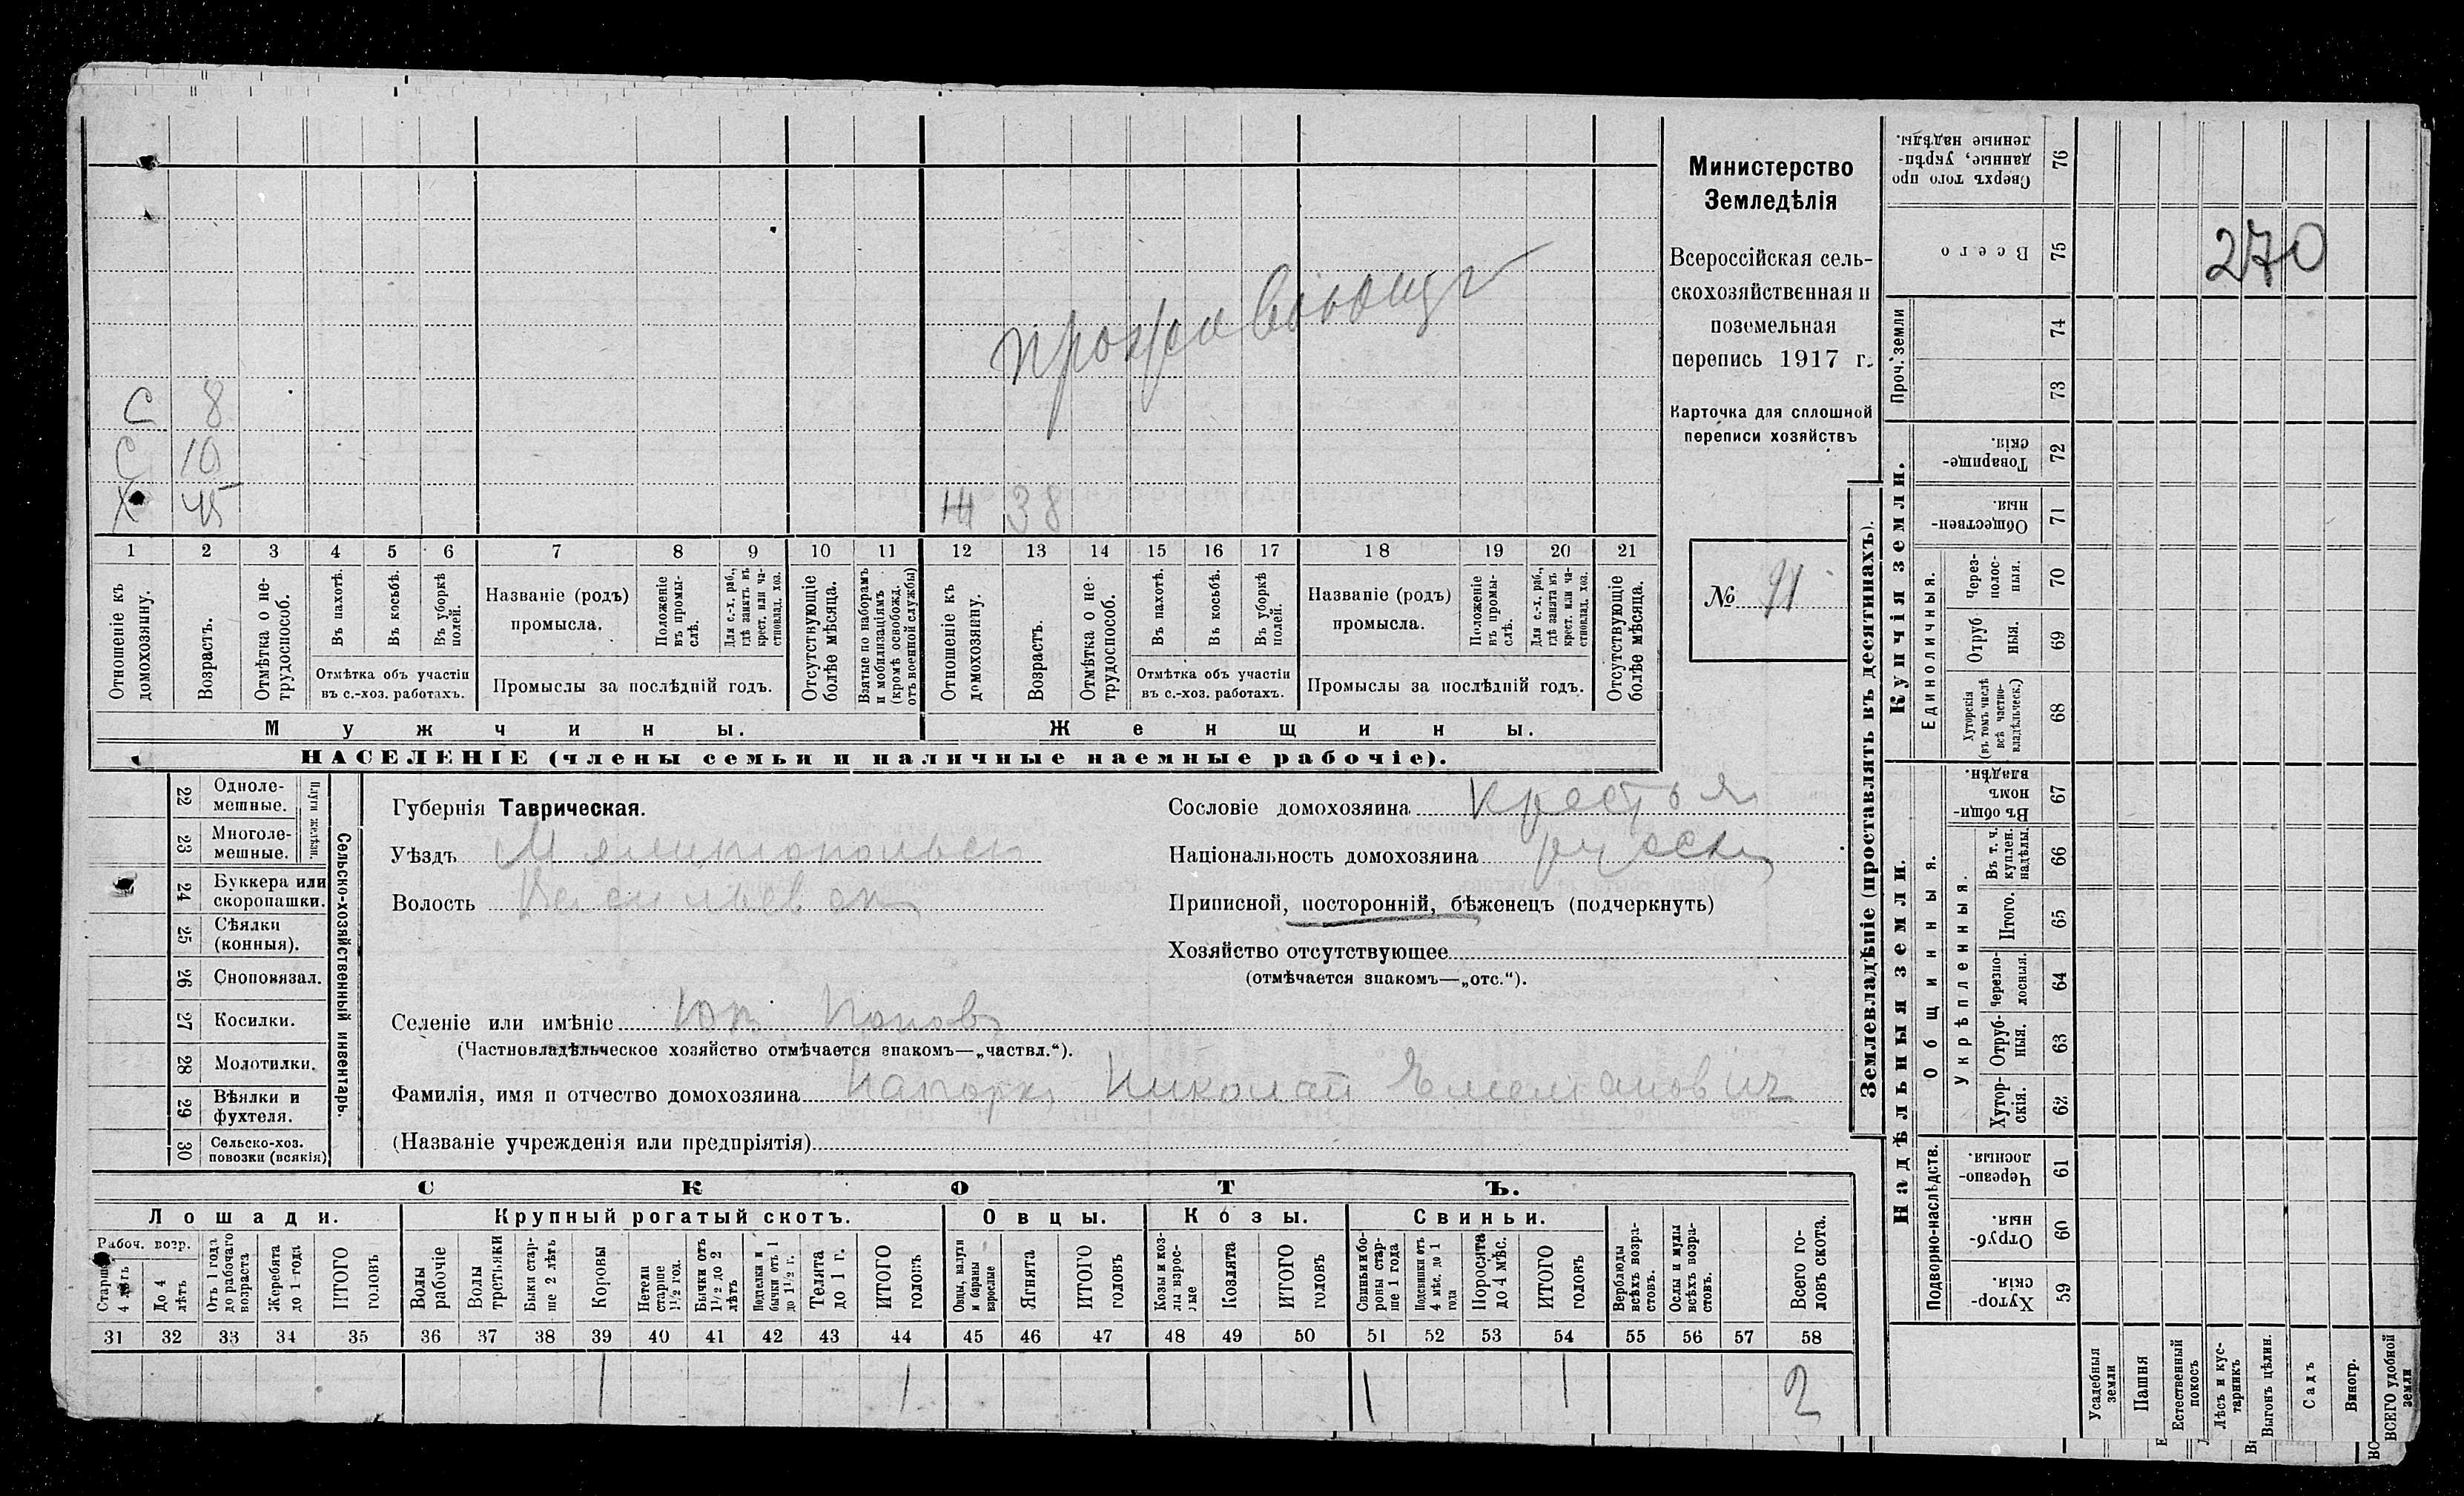 Министерство
Земледѣлія
Всероссійская сель-
скохозяйственная и
поземельная
перепись 1917 г.
Карточка для сплошной
переписи хозяйствъ
№ 91
270
С 8
С 10
Х 45
Ж 38
1 2 3 4 5 6 7 8 9 10 11 12 13 14 15 16 17 18 19 20 21
Отношеніе къ домохозяину.
Возрастъ.
Отмѣтка о не-трудоспособ.
Въ пахотѣ.
Въ косьбѣ.
Въ уборкѣ полей.
Отмѣтка объ участіи
въ с.-хоз. работахъ.
Названіе (родъ)
промысла.
Положеніе въ промы-слѣ.
Для с.-х. раб., гдѣ занятъ въ крест. или ча-стновлад. хоз.
Промыслы за послѣдній годъ.
Отсутствующіе болѣе мѣсяца.
Взятые по наборамъ и мобилизаціямъ (кромѣ освобожд. отъ военной службы)
Отношеніе къ домохозяину.
Возрастъ.
Отмѣтка о не-трудоспособ.
Въ пахотѣ.
Въ косьбѣ.
Въ уборкѣ полей.
Отмѣтка объ участіи
въ с.-хоз. работахъ.
Названіе (родъ)
промысла.
Положеніе въ промы-слѣ.
Для с.-х. раб., гдѣ занята въ крест. или ча-стновлад. хоз.
Промыслы за послѣдній годъ.
Отсутствующіе болѣе мѣсяца.
Мужчины.
Женщины.
НАСЕЛЕНІЕ (члены семьи и наличные наемные рабочіе).
Сельско-хозяйственный инвентарь.
Плуги желѣзн.
22 Одноле-мешные.
23 Многоле-мешные.
24 Буккера или скоропашки.
25 Сѣялки (конныя).
26 Сноповязал.
27 Косилки.
28 Молотилки.
29 Вѣялки и фухтеля.
30 Сельско-хоз. повозки (всякія)
Губернія Таврическая.
Уѣздъ
Волость Васильевск
Сословіе домохозяина Крестья
Національность домохозяина русск
Приписной, посторонній, бѣженецъ (подчеркнуть)
Хозяйство отсутствующее
(отмѣчается знакомъ—„отс.“).
Селеніе или имѣніе Попов
(Частновладѣльческое хозяйство отмѣчается знакомъ—„частвл.“).
Фамилія, имя и отчество домохозяина Николай
(Названіе учрежденія или предпріятія)
СКОТЪ.
Лошади. Крупный рогатый скотъ. Овцы. Козы. Свиньи.
Рабоч. возр.
Старше 4 лѣтъ
До 4 лѣтъ
Отъ 1 года до рабочаго возраста
Жеребята до 1 года
ИТОГО головъ
Волы рабочіе
Волы третьяки
Быки стар-ше 2 лѣтъ
Коровы
Нетели старше 1½ год.
Бычки отъ 1½ до 2 лѣтъ
Подтелки и бычки отъ 1 до 1½ г.
Телята до 1 г.
ИТОГО головъ
Овцы, валухи и бараны взрослые
Ягнята
ИТОГО головъ
Козы и коз-лы взрос-лые
Козлята
ИТОГО головъ
Свиньи и бо-ровы стар-ше 1 года
Подсвинки отъ 4 мѣс. до 1 года
Поросята до 4 мѣс.
ИТОГО головъ
Верблюды всѣхъ возра-стовъ.
Ослы и мулы всѣхъ возра-стовъ.
Всего го-ловъ скота.
31 32 33 34 35 36 37 38 39 40 41 42 43 44 45 46 47 48 49 50 51 52 53 54 55 56 57 58
1 1 1 1 2
Землевладѣніе (проставлять въ десятинахъ).
Надѣльныя земли.
Купчія земли.
Проч. земли
Подворно-наслѣдств.
Общинныя.
Укрѣпленныя.
Единоличныя.
Сверхъ того про данные, укрѣп-ленные надѣлы. 76
Всего 75
74
73
Товарище-скія. 72
Обществен-ныя. 71
Через-полос-ныя. 70
Отруб ныя. 69
Хуторскія (въ томъ числѣ всѣ частно-владѣльческ.) 68
Въ общин-номъ владѣн. 67
Въ т. ч. куплен. надѣлы. 66
Итого. 65
Черезпо-лосныя. 64
Отруб-ныя. 63
Хутор-скія. 62
Черезпо-лосныя. 61
Отруб-ныя. 60
Хутор-скія. 59
Усадебныя земли
Пашня
Естественный покосъ
Лѣсъ и кус-тарникъ
Выгонъ цѣлин.
Садъ
Виногр.
ВСЕГО удобной земли